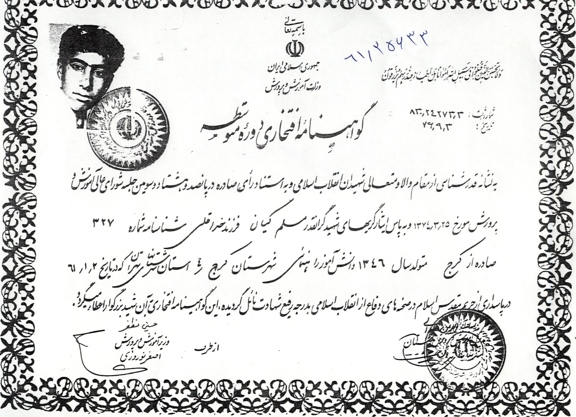 باسمه تعالی
جمهوری اسلامی ایران
وزارت آموزش و پرورش
۶۱/۲۵۶۳۳
شماره ثبت: ۸۳،۲۴۲۷۳،۳
تاریخ: ۷۶،۹،۳
گواهینامهٔ افتخاری دورهٔ متوسطه
به نشانه قدرشناسی از مقام والا و متعالی شهیدان انقلاب اسلامی و به استناد رأی صادره در پانصد و هشتاد و سومین جلسه شورای عالی آموزش و
پرورش مورخ ۱۳۷۴،۳،۲۵ و به پاس ایثارگریهای شهید گرانقدر مسلم کیان فرزند خیراقلی شناسنامه شماره ۳۲۷
صادره از کرج متولد سال ۱۳۴۶ دانش آموز راهنمائی شهرستان کرج استان تهران که در تاریخ ۶۱،۱،۲
در پاسداری از حریم مقدس اسلام در صحنه های دفاع از انقلاب اسلامی به درجه رفیع شهادت نائل گردیده، این گواهینامه افتخاری آن شهید بزرگوار اعطا میگردد.
حسین مظفر
وزیر آموزش و پرورش
از طرف اصغر نوروزی